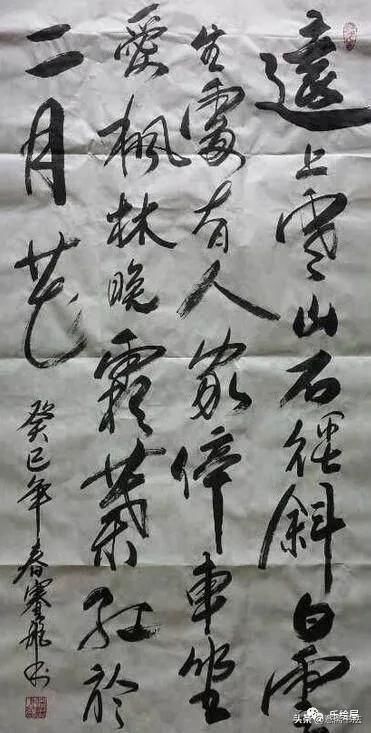 遠上寒山石徑斜白雲
生處有人家停車坐
愛楓林晚霜葉紅於
二月花
癸巳年春飛书
乐绘局
头条